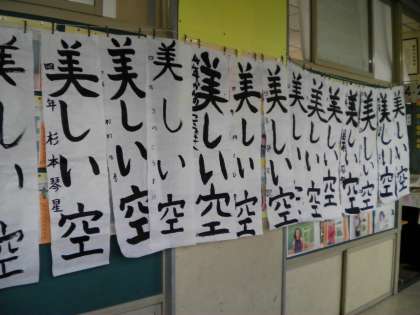 美しい空
美しい空
四年 杉本琴星
美しい空
美しい空
美しい空
美しい空
美しい空
美しい空
美しい空
美しい空
美しい空
美しい空
美しい空